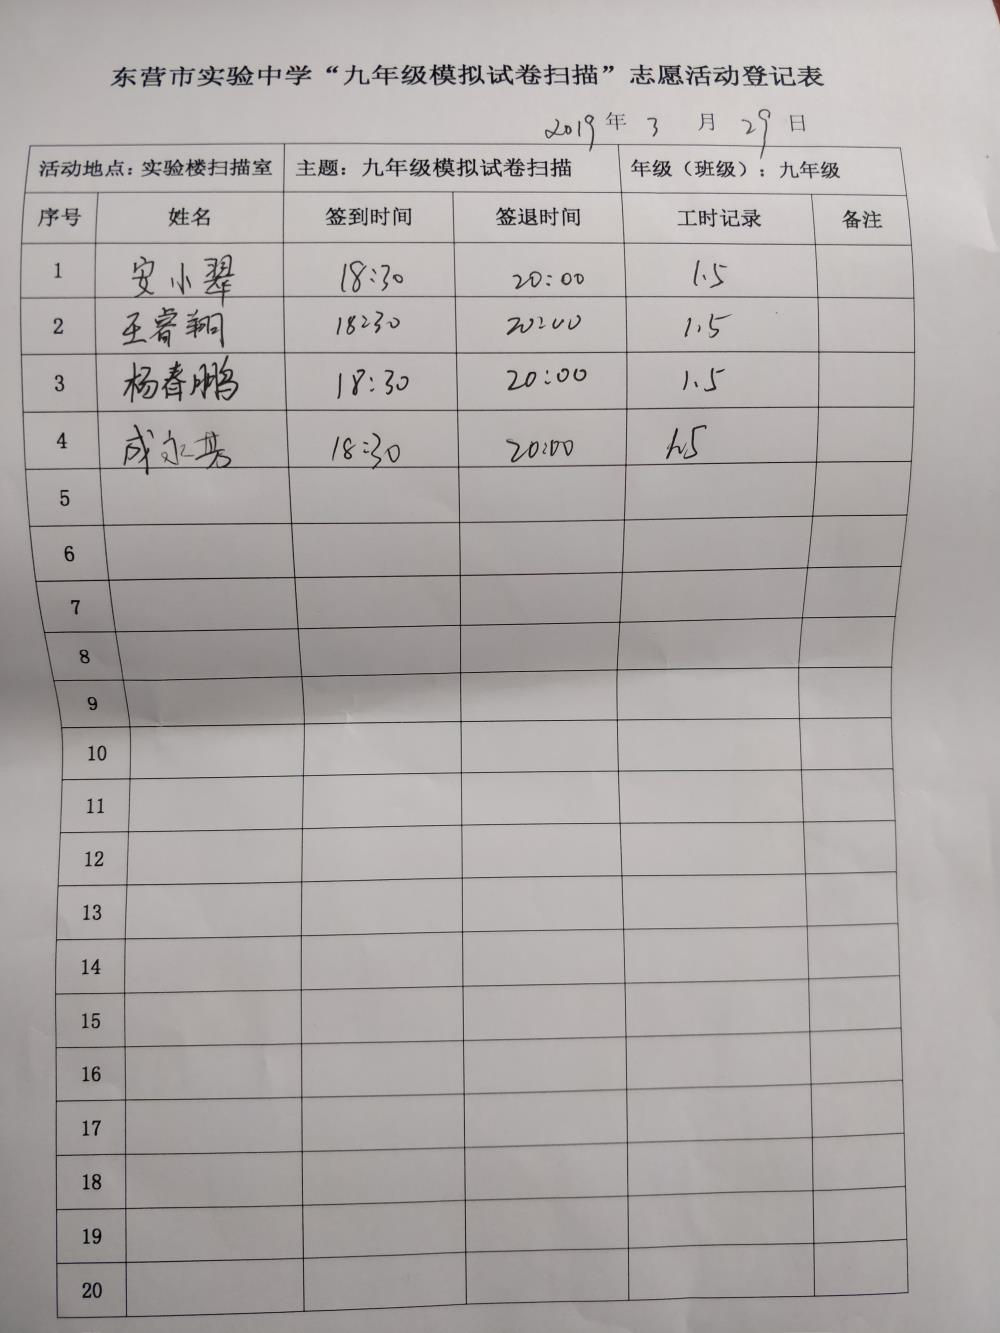 东营市实验中学“九年级模拟试卷扫描”志愿活动登记表
2019年 3 月 29 日
活动地点：实验楼扫描室 主题：九年级模拟试卷扫描 年级（班级）：九年级
序号 姓名 签到时间 签退时间 工时记录 备注
1 安小翠 18:30 20:00 1.5
2 王睿翔 18:30 20:00 1.5
3 杨春鹏 18:30 20:00 1.5
4 成永芳 18:30 20:00 1.5
5
6
7
8
9
10
11
12
13
14
15
16
17
18
19
20